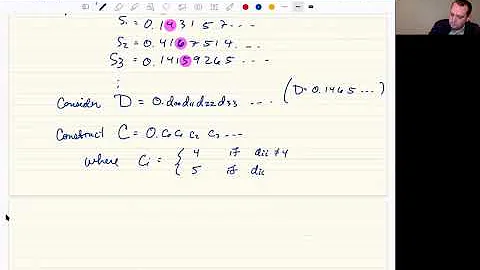 S₁ = 0.143157...
S₂ = 0.4167514...
S₃ = 0.14159265...
⋮
Consider D = 0.d₀₀d₁₁d₂₂d₃₃ .... (D=0.1465...)
Construct C = 0.C₀C₁C₂C₃...
where Cᵢ = { 4 if dᵢᵢ≠4
{ 5 if dᵢᵢ